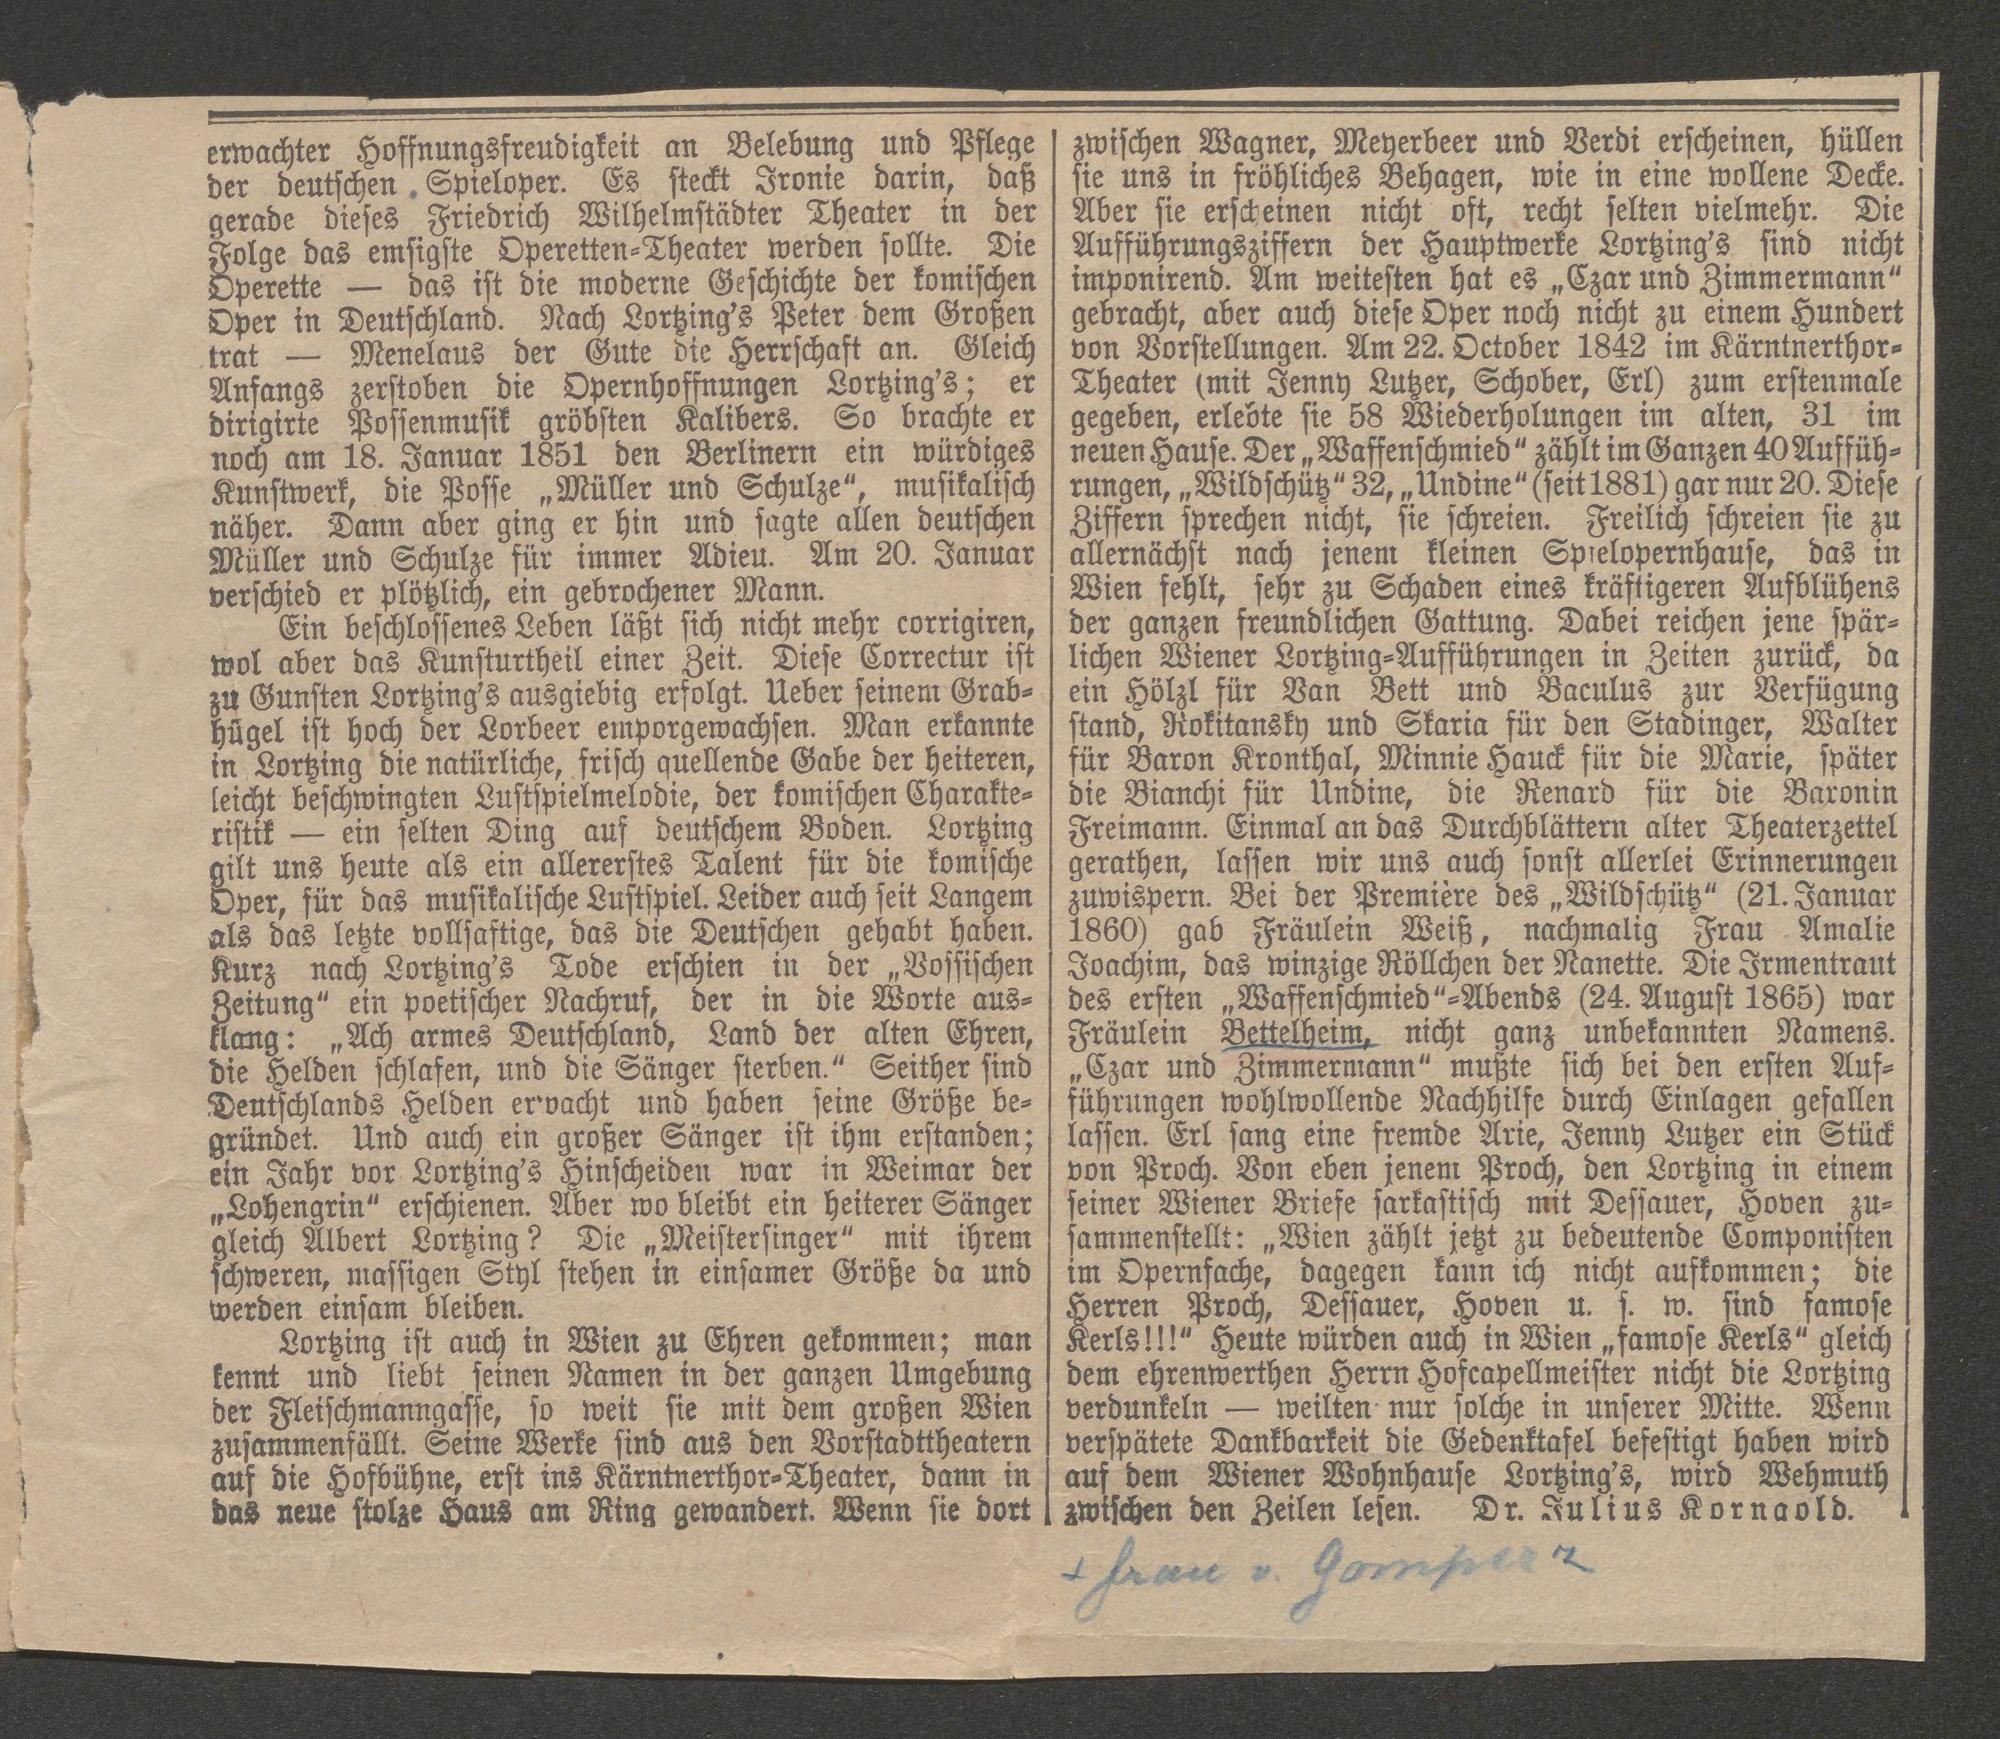 erwachter Hoffnungsfreudigkeit an Belebung und Pflege
der deutschen Spieloper. Es steckt Ironie darin, daß
gerade dieses Friedrich Wilhelmstädter Theater in der
Folge das emsigste Operetten-Theater werden sollte. Die
Operette — das ist die moderne Geschichte der komischen
Oper in Deutschland. Nach Lortzing's Peter dem Großen
trat — Menelaus der Gute die Herrschaft an. Gleich
Anfangs zerstoben die Opernhoffnungen Lortzing's; er
dirigirte Possenmusik gröbsten Kalibers. So brachte er
noch am 18. Januar 1851 den Berlinern ein würdiges
Kunstwerk, die Posse „Müller und Schulze“, musikalisch
näher. Dann aber ging er hin und sagte allen deutschen
Müller und Schulze für immer Adieu. Am 20. Januar
verschied er plötzlich, ein gebrochener Mann.
Ein beschlossenes Leben läßt sich nicht mehr corrigiren,
wol aber das Kunsturtheil einer Zeit. Diese Correctur ist
zu Gunsten Lortzing's ausgiebig erfolgt. Ueber seinem Grab-
hügel ist hoch der Lorbeer emporgewachsen. Man erkannte
in Lortzing die natürliche, frisch quellende Gabe der heiteren,
leicht beschwingten Lustspielmelodie, der komischen Charakte-
ristik — ein selten Ding auf deutschem Boden. Lortzing
gilt uns heute als ein allererstes Talent für die komische
Oper, für das musikalische Lustspiel. Leider auch seit Langem
als das letzte vollsaftige, das die Deutschen gehabt haben.
Kurz nach Lortzing's Tode erschien in der „Vossischen
Zeitung“ ein poetischer Nachruf, der in die Worte aus-
klang: „Ach armes Deutschland, Land der alten Ehren,
die Helden schlafen, und die Sänger sterben.“ Seither sind
Deutschlands Helden erwacht und haben seine Größe be-
gründet. Und auch ein großer Sänger ist ihm erstanden;
ein Jahr vor Lortzing's Hinscheiden war in Weimar der
„Lohengrin“ erschienen. Aber wo bleibt ein heiterer Sänger
gleich Albert Lortzing? Die „Meistersinger“ mit ihrem
schweren, massigen Styl stehen in einsamer Größe da und
werden einsam bleiben.
Lortzing ist auch in Wien zu Ehren gekommen; man
kennt und liebt seinen Namen in der ganzen Umgebung
der Fleischmanngasse, so weit sie mit dem großen Wien
zusammenfällt. Seine Werke sind aus den Vorstadttheatern
auf die Hofbühne, erst ins Kärntnerthor-Theater, dann in
das neue stolze Haus am Ring gewandert. Wenn sie dort
zwischen Wagner, Meyerbeer und Verdi erscheinen, hüllen
sie uns in fröhliches Behagen, wie in eine wollene Decke.
Aber sie erscheinen nicht oft, recht selten vielmehr. Die
Aufführungsziffern der Hauptwerke Lortzing's sind nicht
imponirend. Am weitesten hat es „Czar und Zimmermann“
gebracht, aber auch diese Oper noch nicht zu einem Hundert
von Vorstellungen. Am 22. October 1842 im Kärntnerthor-
Theater (mit Jenny Lutzer, Schober, Erl) zum erstenmale
gegeben, erlebte sie 58 Wiederholungen im alten, 31 im
neuen Hause. Der „Waffenschmied“ zählt im Ganzen 40 Auffüh-
rungen, „Wildschütz“ 32, „Undine“ (seit 1881) gar nur 20. Diese
Ziffern sprechen nicht, sie schreien. Freilich schreien sie zu
allernächst nach jenem kleinen Spielopernhause, das in
Wien fehlt, sehr zu Schaden eines kräftigeren Aufblühens
der ganzen freundlichen Gattung. Dabei reichen jene spär-
lichen Wiener Lortzing-Aufführungen in Zeiten zurück, da
ein Hölzl für Van Bett und Baculus zur Verfügung
stand, Rokitansky und Skaria für den Stadinger, Walter
für Baron Kronthal, Minnie Hauck für die Marie, später
die Bianchi für Undine, die Renard für die Baronin
Freimann. Einmal an das Durchblättern alter Theaterzettel
gerathen, lassen wir uns auch sonst allerlei Erinnerungen
zuwispern. Bei der Première des „Wildschütz“ (21. Januar
1860) gab Fräulein Weiß, nachmalig Frau Amalie
Joachim, das winzige Röllchen der Nanette. Die Irmentraut
des ersten „Waffenschmied“-Abends (24. August 1865) war
Fräulein Bettelheim, nicht ganz unbekannten Namens.
„Czar und Zimmermann“ mußte sich bei den ersten Auf-
führungen wohlwollende Nachhilfe durch Einlagen gefallen
lassen. Erl sang eine fremde Arie, Jenny Lutzer ein Stück
von Proch. Von eben jenem Proch, den Lortzing in einem
seiner Wiener Briefe sarkastisch mit Dessauer, Hoven zu-
sammenstellt: „Wien zählt jetzt zu bedeutende Componisten
im Opernfache, dagegen kann ich nicht aufkommen; die
Herren Proch, Dessauer, Hoven u. s. w. sind famose
Kerls!!!“ Heute würden auch in Wien „famose Kerls“ gleich
dem ehrenwerthen Herrn Hofcapellmeister nicht die Lortzing
verdunkeln — weilten nur solche in unserer Mitte. Wenn
verspätete Dankbarkeit die Gedenktafel befestigt haben wird
auf dem Wiener Wohnhause Lortzing's, wird Wehmuth
zwischen den Zeilen lesen. Dr. Julius Korngold.
+ Frau v. Gomperz